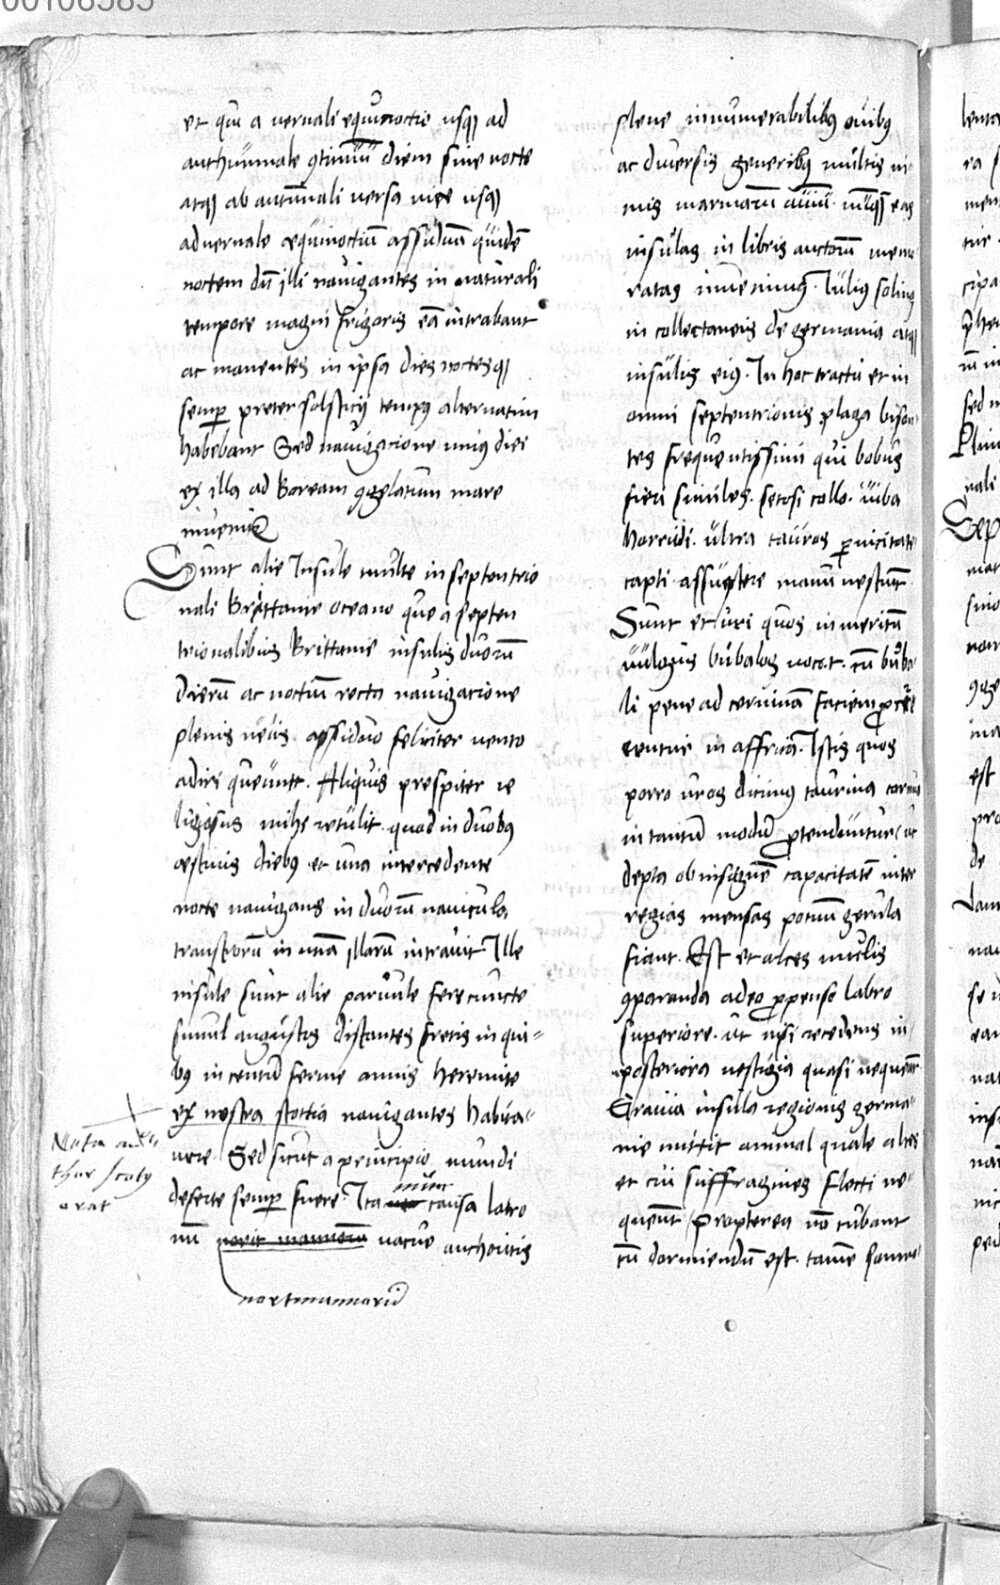 00106585
et qui a vernali equinoctio usqꝫ ad
authumnale ꝯtinuũ diem sine nocte
atqꝫ ab autũnali versa vice usqꝫ
ad vernale æquinoctiũ assiduã quidẽ
noctem dũ illi navigantes in naturali
tempore magni frigoris eã intrabant
ac manentes in ipsa dies noctesqꝫ
semp̱ preter solsticij tempꝰ alternatim
habebant Sed navigacione uniꝰ diei
ex illa ad Boream ꝯgelatum mare
invenit
Sunt alie Insule multe in septentrio
nali Brittanie oceano que a septen
trionalibus Brittanie insulis duorũ
dierũ ac noctiũ recta navigacione
plenis velis assiduo feliciter vento
adiri queunt. Aliquis prespiter re
ligiosus mihi retulit quod in duobꝰ
æstivis diebꝰ et una intercedente
nocte navigans in duorũ navicula
transtrorũ in unã illarũ intravit Ille
insule sunt alie parvule fere cuncte
simul angustis distantes fretis in qui-
bꝰ in centũ ferme annis heremite
ex nostra scottia navigantes habita-
vere Sed sicut a principio mundi
deserte semp̱ fuere. Ita nunc causa latro
nũ norit mannorũ vacue anchoritis
nortmannorũ
Nota auc
thor scotꝰ
erat
plene innumerabilibꝰ ovibꝰ
ac diversis generibꝰ multis ni-
mis marinarũ aviũ. nũqꝫ eas
insulas in libris auctorũ memo
ratas invenimꝰ. Iuliꝰ solinꝰ
in collectaneis de germania atqꝫ
insulis eiꝰ. In hoc tractu et in
omni septentrionis plaga bison
tes frequentissimi qui bobus
fieri similes. setosi collo. iuba
horridi. ultra tauros p̱nicitate
capti assuescere manu nesciunt
Sunt et uri quos inmeritũ
vulgus bubalos vocat. cũ buba
li pene ad cervinã faciem procre
entur in affrica. Istis quos
porro uros dicimꝰ taurina cornua
in tantũ modũ protenduntur ut
depta ob insignẽ capacitatẽ inter
regias mensas potuum gerula
fiant. Est et alces mulis
ꝯparanda adeo propense labro
superiore. ut nisi recedens in
posteriora vestigia quasi nequeat
Gravia insula regionis germa-
nie mittit animal quale alces
et cui suffragines flecti ne-
queunt propterea nõ cubant
cũ dormiendũ est. tamẽ somno